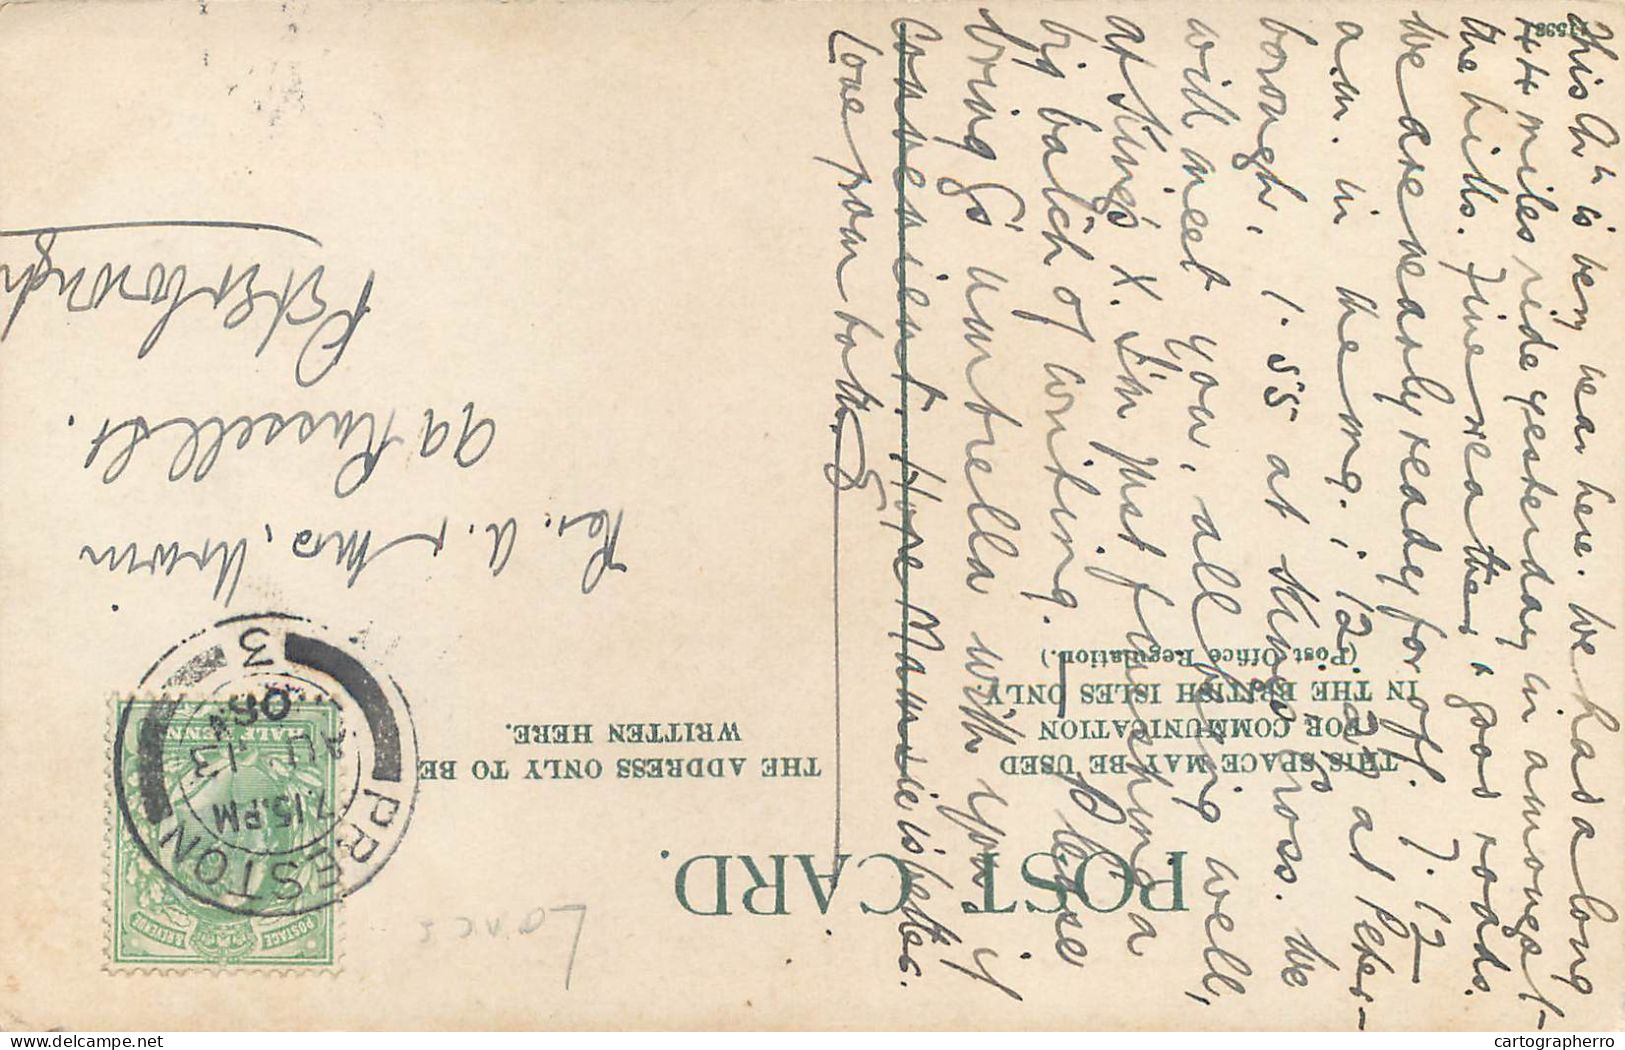 POST CARD.
THIS SPACE MAY BE USED
FOR COMMUNICATION
IN THE BRITISH ISLES ONLY
(Post Office Regulation.)
THE ADDRESS ONLY TO BE
WRITTEN HERE.
This Ch is very near here. We had a long
44 miles ride yesterday in amongst
the hills. Fine weather & good roads.
We are nearly ready for off. 7.12
a.m. in the mng; 12. at Peter-
borough, 1.55 at King's Cross. We
will meet you, all being well,
at King's X. I'm just finishing a
big batch of writing. Please
bring G's umbrella with you if
convenient. Hope Mamie is better.
Love from both. G
Rev. A. & Mrs. Urwin
99 Russell St.
Peterborough
PRESTON
7.15.PM
AU 13
3
POSTAGE & REVENUE
HALF PENNY
Lancs
cartographerro